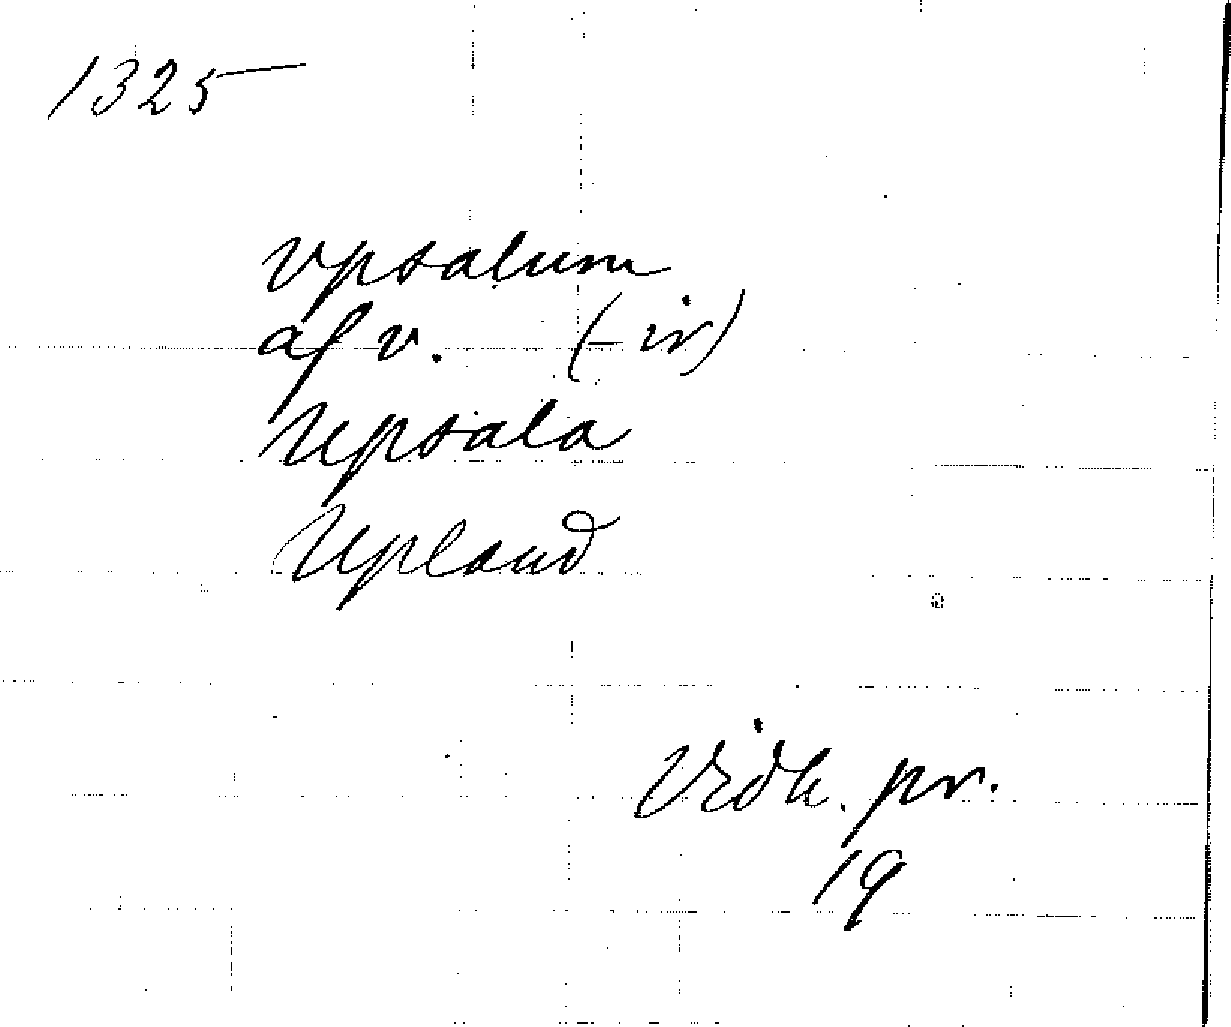 1325
vpsalum
af v. (-ir)
Upsala
Upland
Vidh. pr.
19